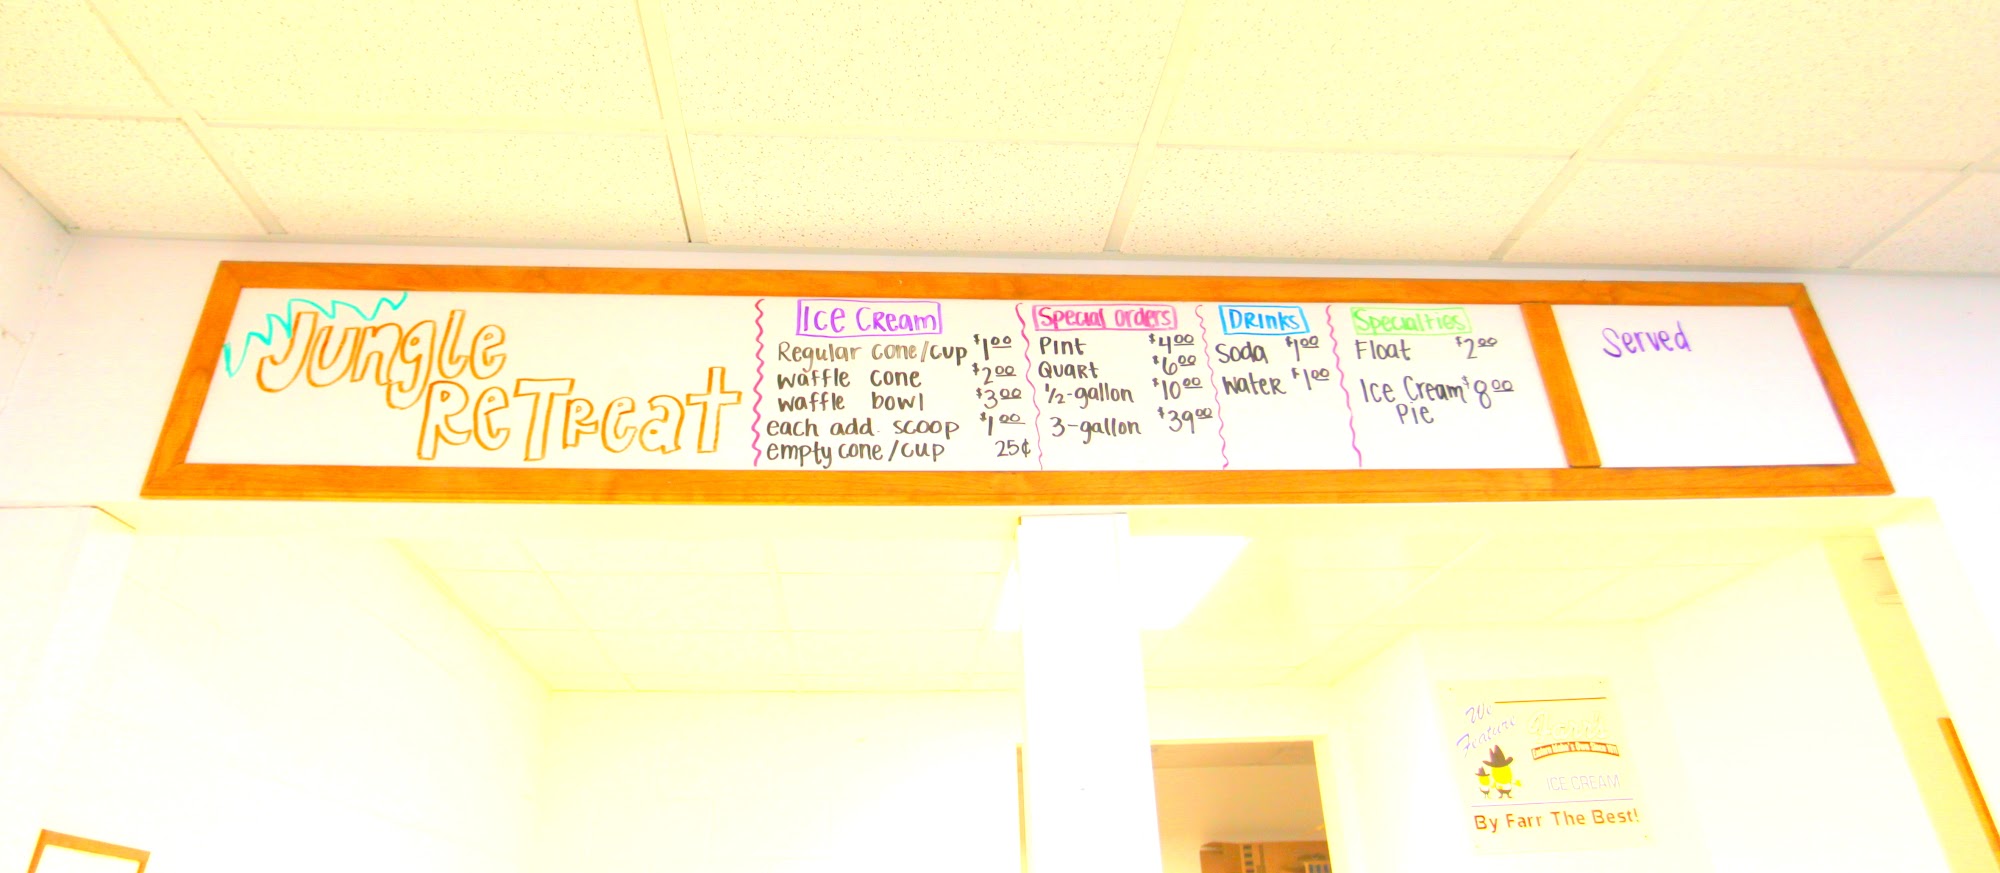 Jungle
ReTreat
Ice Cream
Regular cone/cup $1.00
waffle cone $2.00
waffle bowl $3.00
each add. scoop $1.00
empty cone/cup 25¢
Special Orders
Pint $4.00
Quart $6.00
1/2-gallon $10.00
3-gallon $39.00
Drinks
Soda $1.00
Water $1.00
Specialties
Float $2.00
Ice Cream $8.00
Pie
Served
We
Feature
ICE CREAM
By Farr The Best!